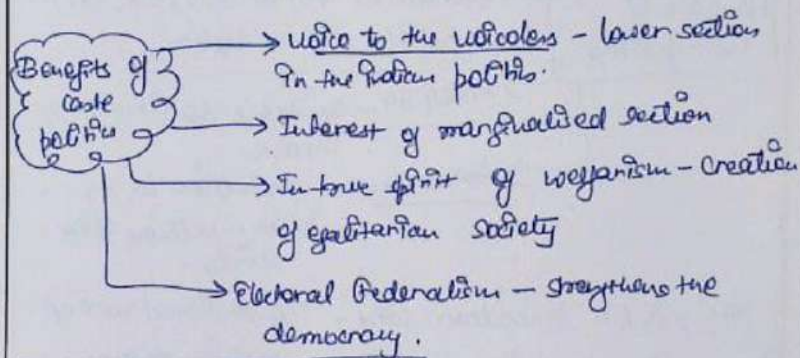 Benefits of
caste
politics
→ Voice to the voiceless - lower section
in the Indian politics.
→ Interest of marginalised section
→ In true spirit of welfarism - creation
of egalitarian society
→ Electoral Federalism - strengthens the
democracy.